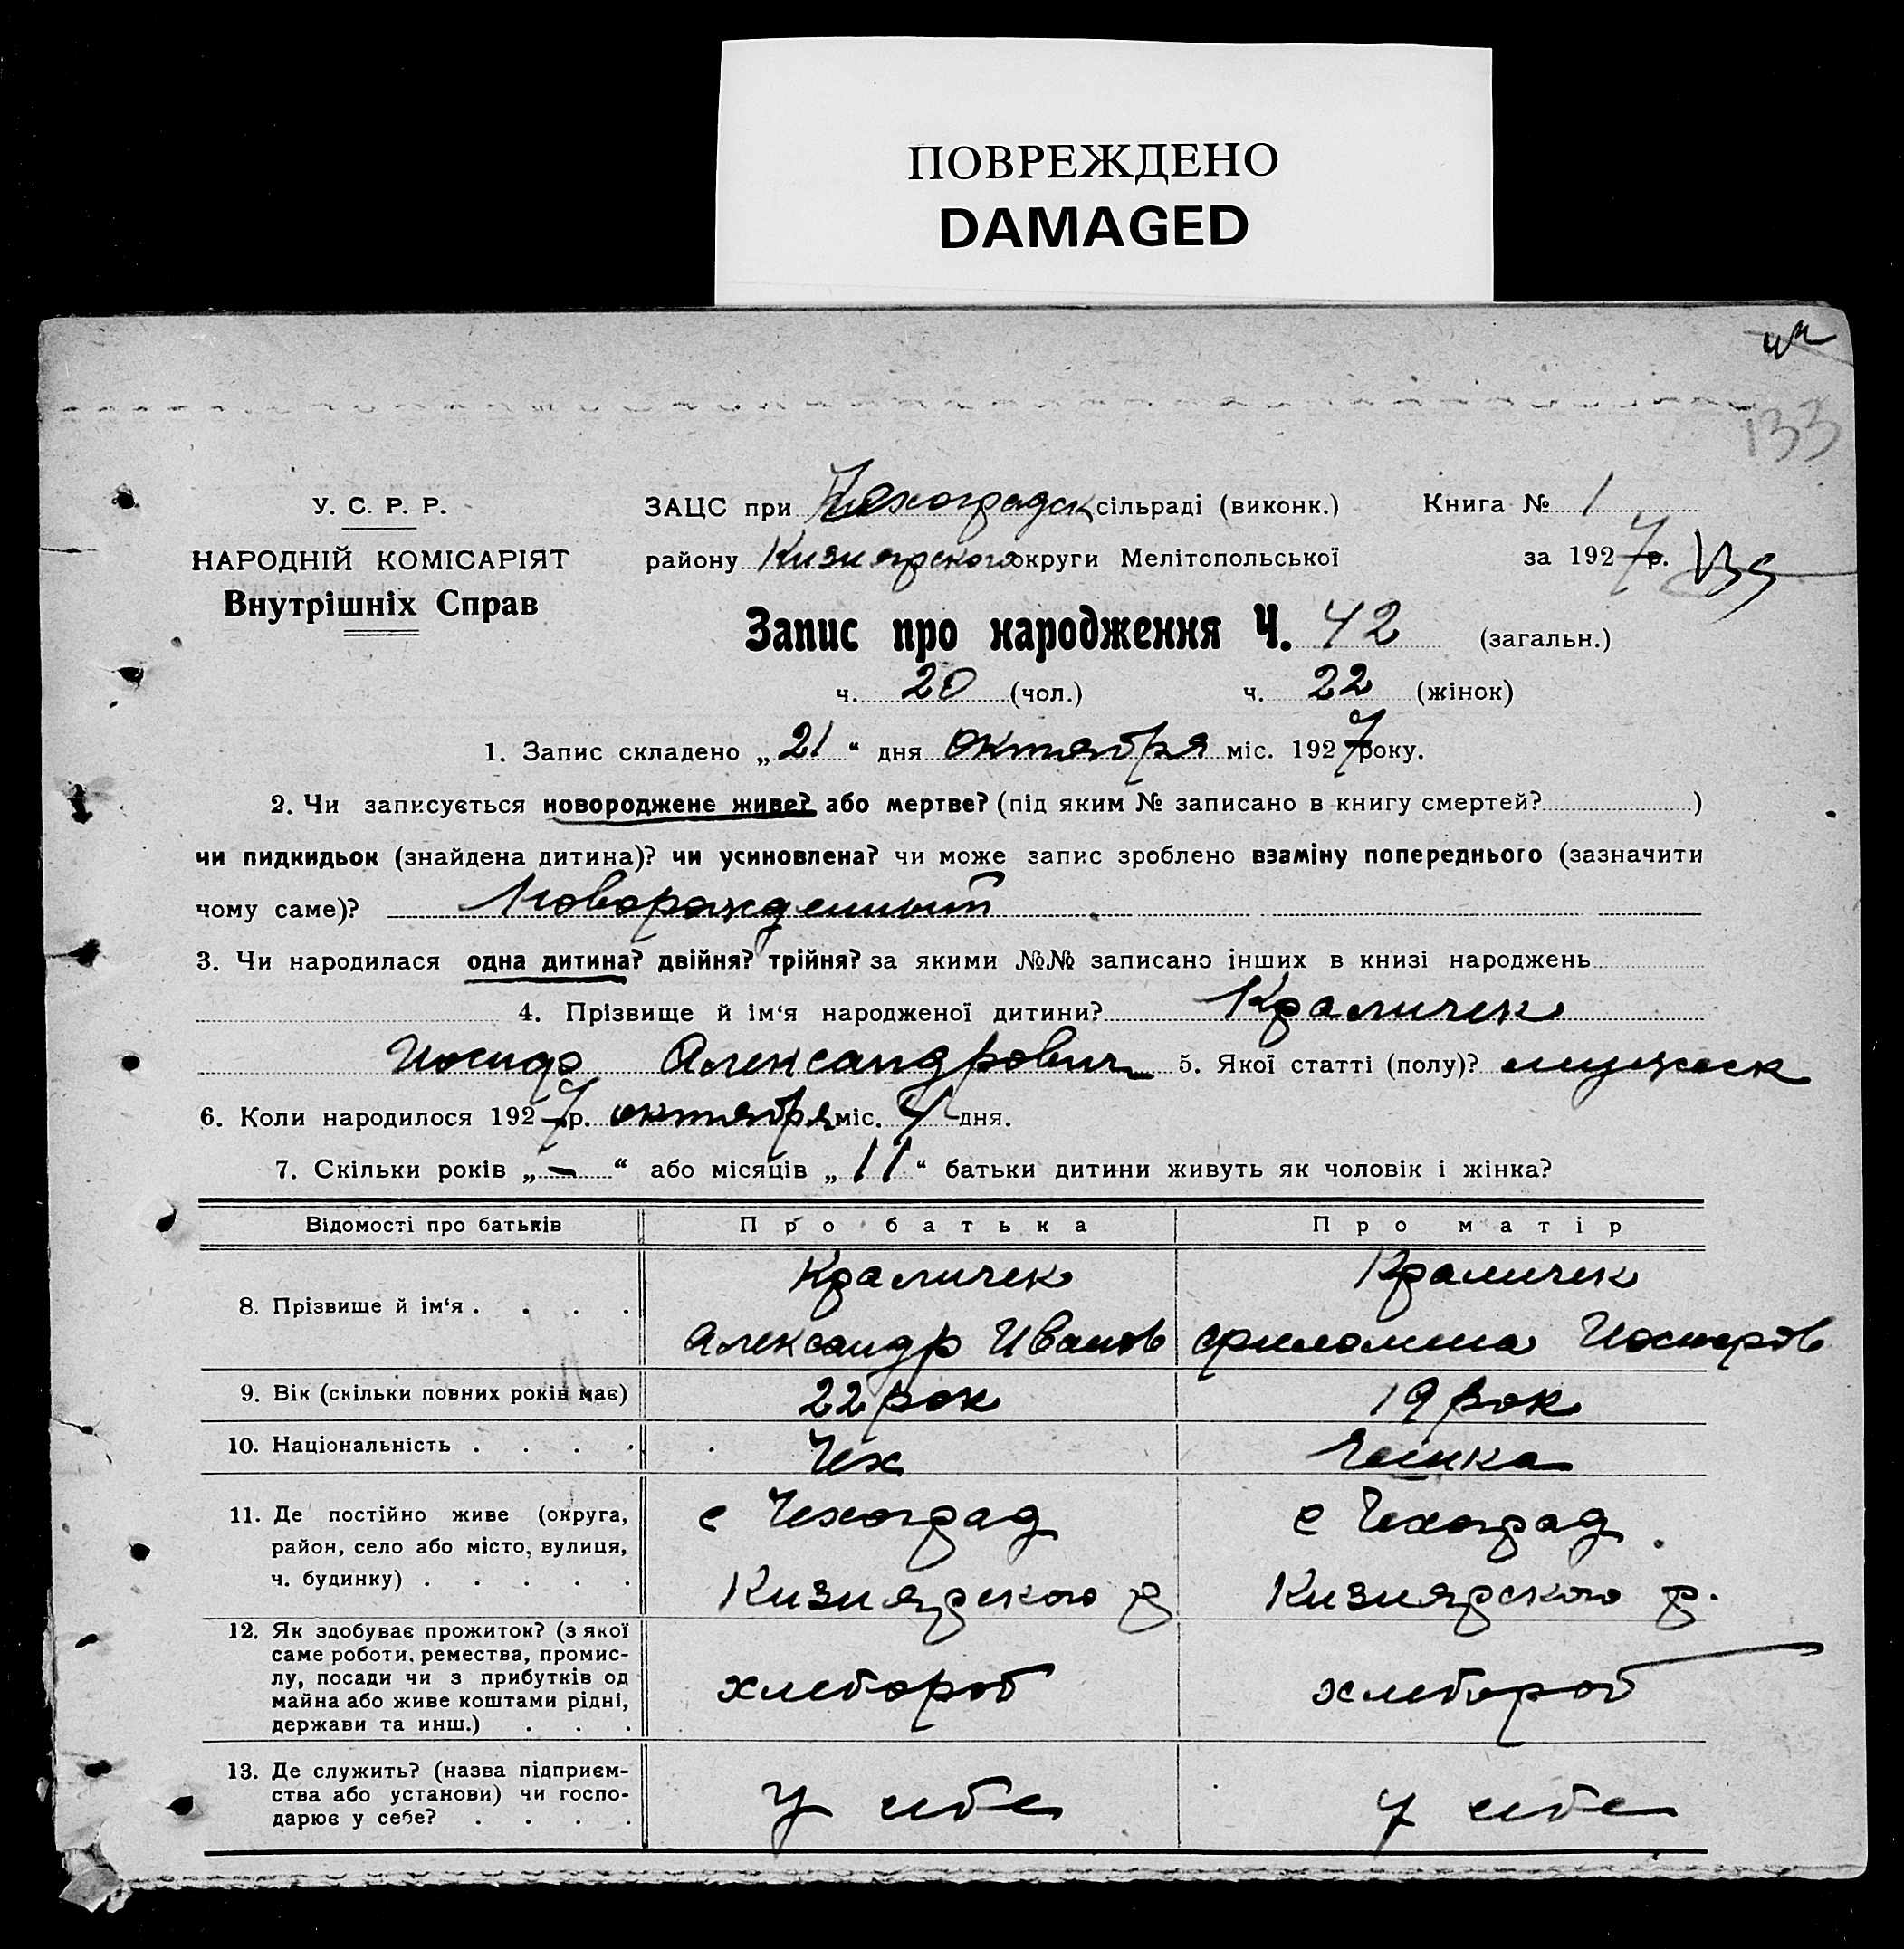 ПОВРЕЖДЕНО
DAMAGED
133
У. С. Р. Р.
НАРОДНІЙ КОМІСАРІЯТ
Внутрішніх Справ
ЗАЦС при Чехоградск сільраді (виконк.) Книга № 1
району Кизиярского округи Мелітопольської за 1927 р.
Запис про народження Ч. 42 (загальн.)
ч. 20 (чол.) ч. 22 (жінок)
1. Запис складено „21“ дня октября міс. 1927 року.
2. Чи записується новороджене живе? або мертве? (під яким № записано в книгу смертей? )
чи пидкидьок (знайдена дитина)? чи усиновлена? чи може запис зроблено взаміну попереднього (зазначити
чому саме)? Новорожденный
3. Чи народилася одна дитина? двійня? трійня? за якими №№ записано інших в книзі народжень
4. Прізвище й ім‘я народженої дитини? Краличек
Иосиф Александрович 5. Якої статті (полу)? мужеск
6. Коли народилося 1927 р. октября міс. 4 дня.
7. Скільки років „—“ або місяців „11“ батьки дитини живуть як чоловік і жінка?
Відомості про батьків Про батька Про матір
8. Прізвище й ім‘я . . . . Краличек Краличек
Александр Иванов Филомина Иосифов
9. Вік (скільки повних років має) 22 рок 19 рок
10. Національність . . . . Чех Чешка
11. Де постійно живе (округа, район, село або місто, вулиця, ч. будинку) . . . . . с Чехоград с Чехоград
Кизиярского р Кизиярского р.
12. Як здобуває прожиток? (з якої
саме роботи, ремества, промис-
лу, посади чи з прибутків од
майна або живе коштами рідні,
держави та инш.) . . . хлебороб хлебороб
13. Де служить? (назва підприєм-
ства або установи) чи госпо-
дарює у себе? . . . . У себе у себе